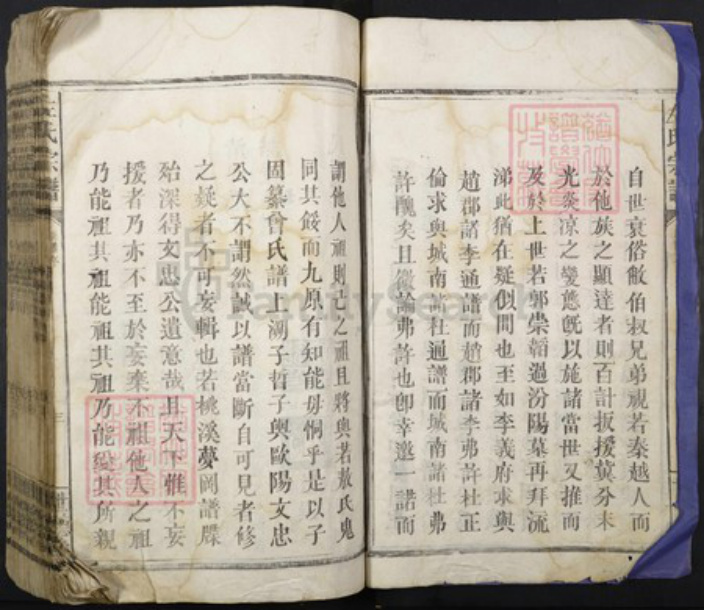 自世衰俗敝伯叔兄弟視若秦越人而
於他族之顯達者則百計扳援冀分末
光炎凉之變態旣以施諸當世又推而
及於上世若郭崇韜過汾陽墓再拜流
涕此猶在疑似間也至如李義府求與
趙郡諸李通譜而趙郡諸李弗許杜正
倫求與城南諸杜通譜而城南諸杜弗
許醜矣且微論弗許也卽幸邀一諾而
謂他人祖則己之祖且將與若敖氏鬼
同其餒而九原有知能毋恫乎是以子
固纂曾氏譜上溯子哲子與歐陽文忠
公大不謂然誠以譜當斷自可見者修
之疑者不可妄輯也若桃溪夢岡譜牒
殆深得文忠公遺意哉且天下惟不妄
援者乃亦不至於妄棄不祖他人之祖
乃能祖其祖能祖其祖乃能愛其所親
氏宗譜
FamilySearch